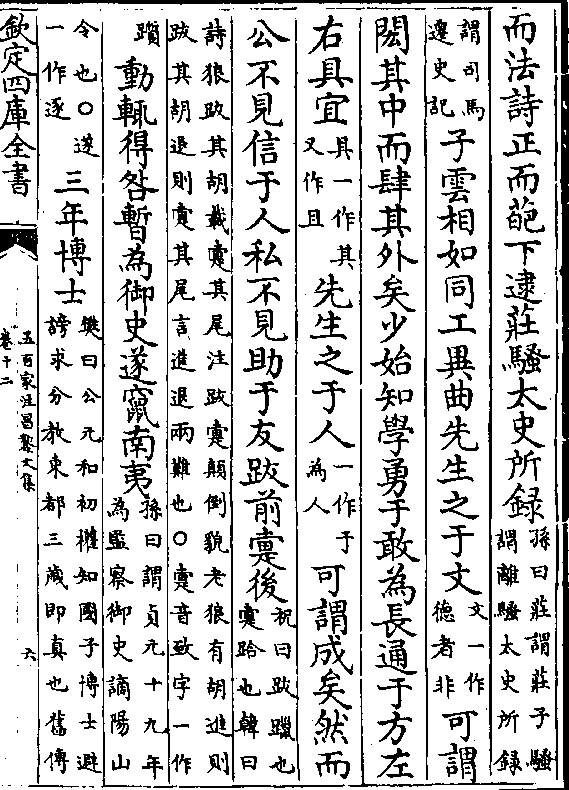 而法詩正而葩下逮莊騷太史所錄
孫曰莊謂莊子騷
謂離騷太史所錄
謂司馬
遷史記
子雲相如同工異曲先生之于文
文一作
德者非
可謂
閎其中而肆其外矣少始知學勇于敢為長通于方左
右具宜
具一作其
又作且
先生之于人
一作于
為人
可謂成矣然而
公不見信于人私不見助于友跋前疐後
祝曰跋躐也
疐跲也韓曰
詩狼跋其胡載疐其尾注跋疐顛倒貌老狼有胡進則
跋其胡退則疐其尾言進退兩難也○疐音致字一作
躓
動輒得咎暫為御史遂竄南夷
孫曰謂貞元十九年
為監察御史謫陽山
令也○遂
一作逐
三年博士
樊曰公元和初權知國子博士避
謗求分教東都三歲即真也舊傳
欽定四庫全書
五百家注昌黎文集
卷十二
六